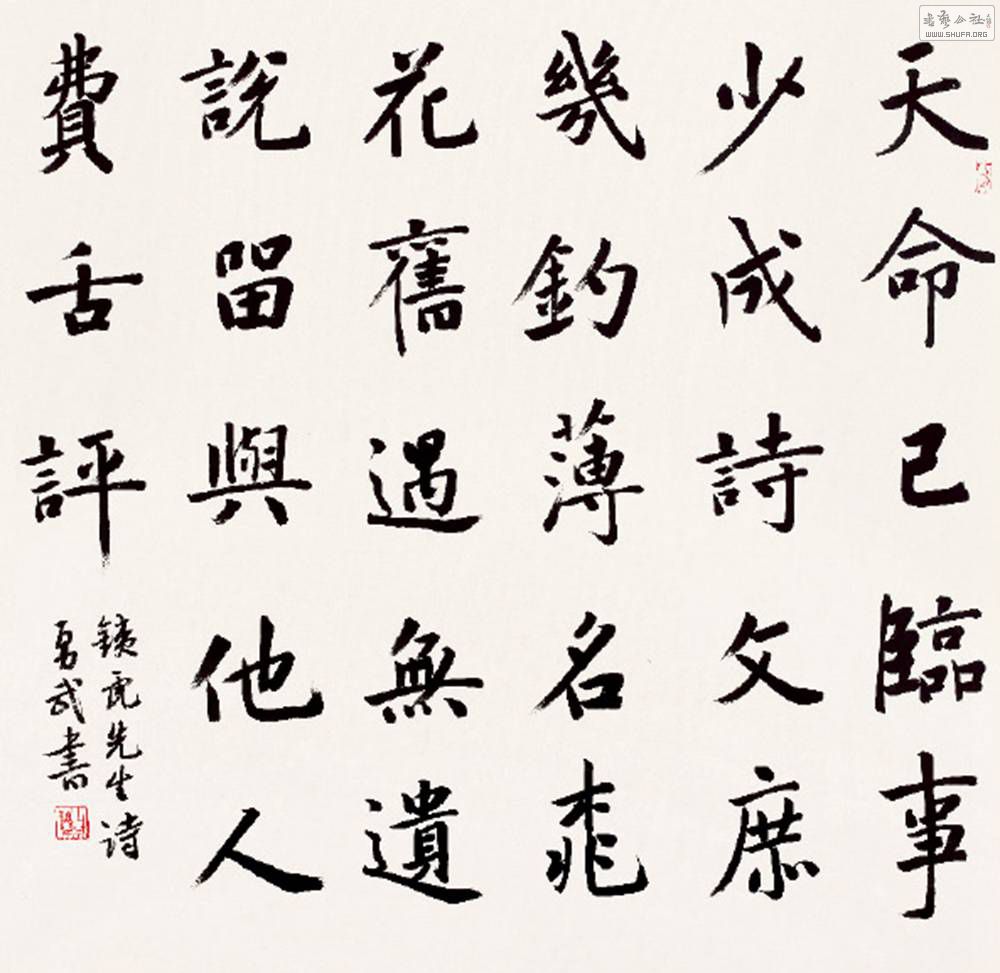 天命已臨事
少成詩文庶
幾釣薄名桃
花舊遇無遺
說留與他人
費舌評
鐵虎先生诗
勇武書
書藝公社
WWW.SHUFA.ORG